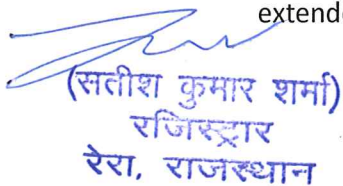 extende
(सतीश कुमार शर्मा)
रजिस्ट्रार
रेरा, राजस्थान